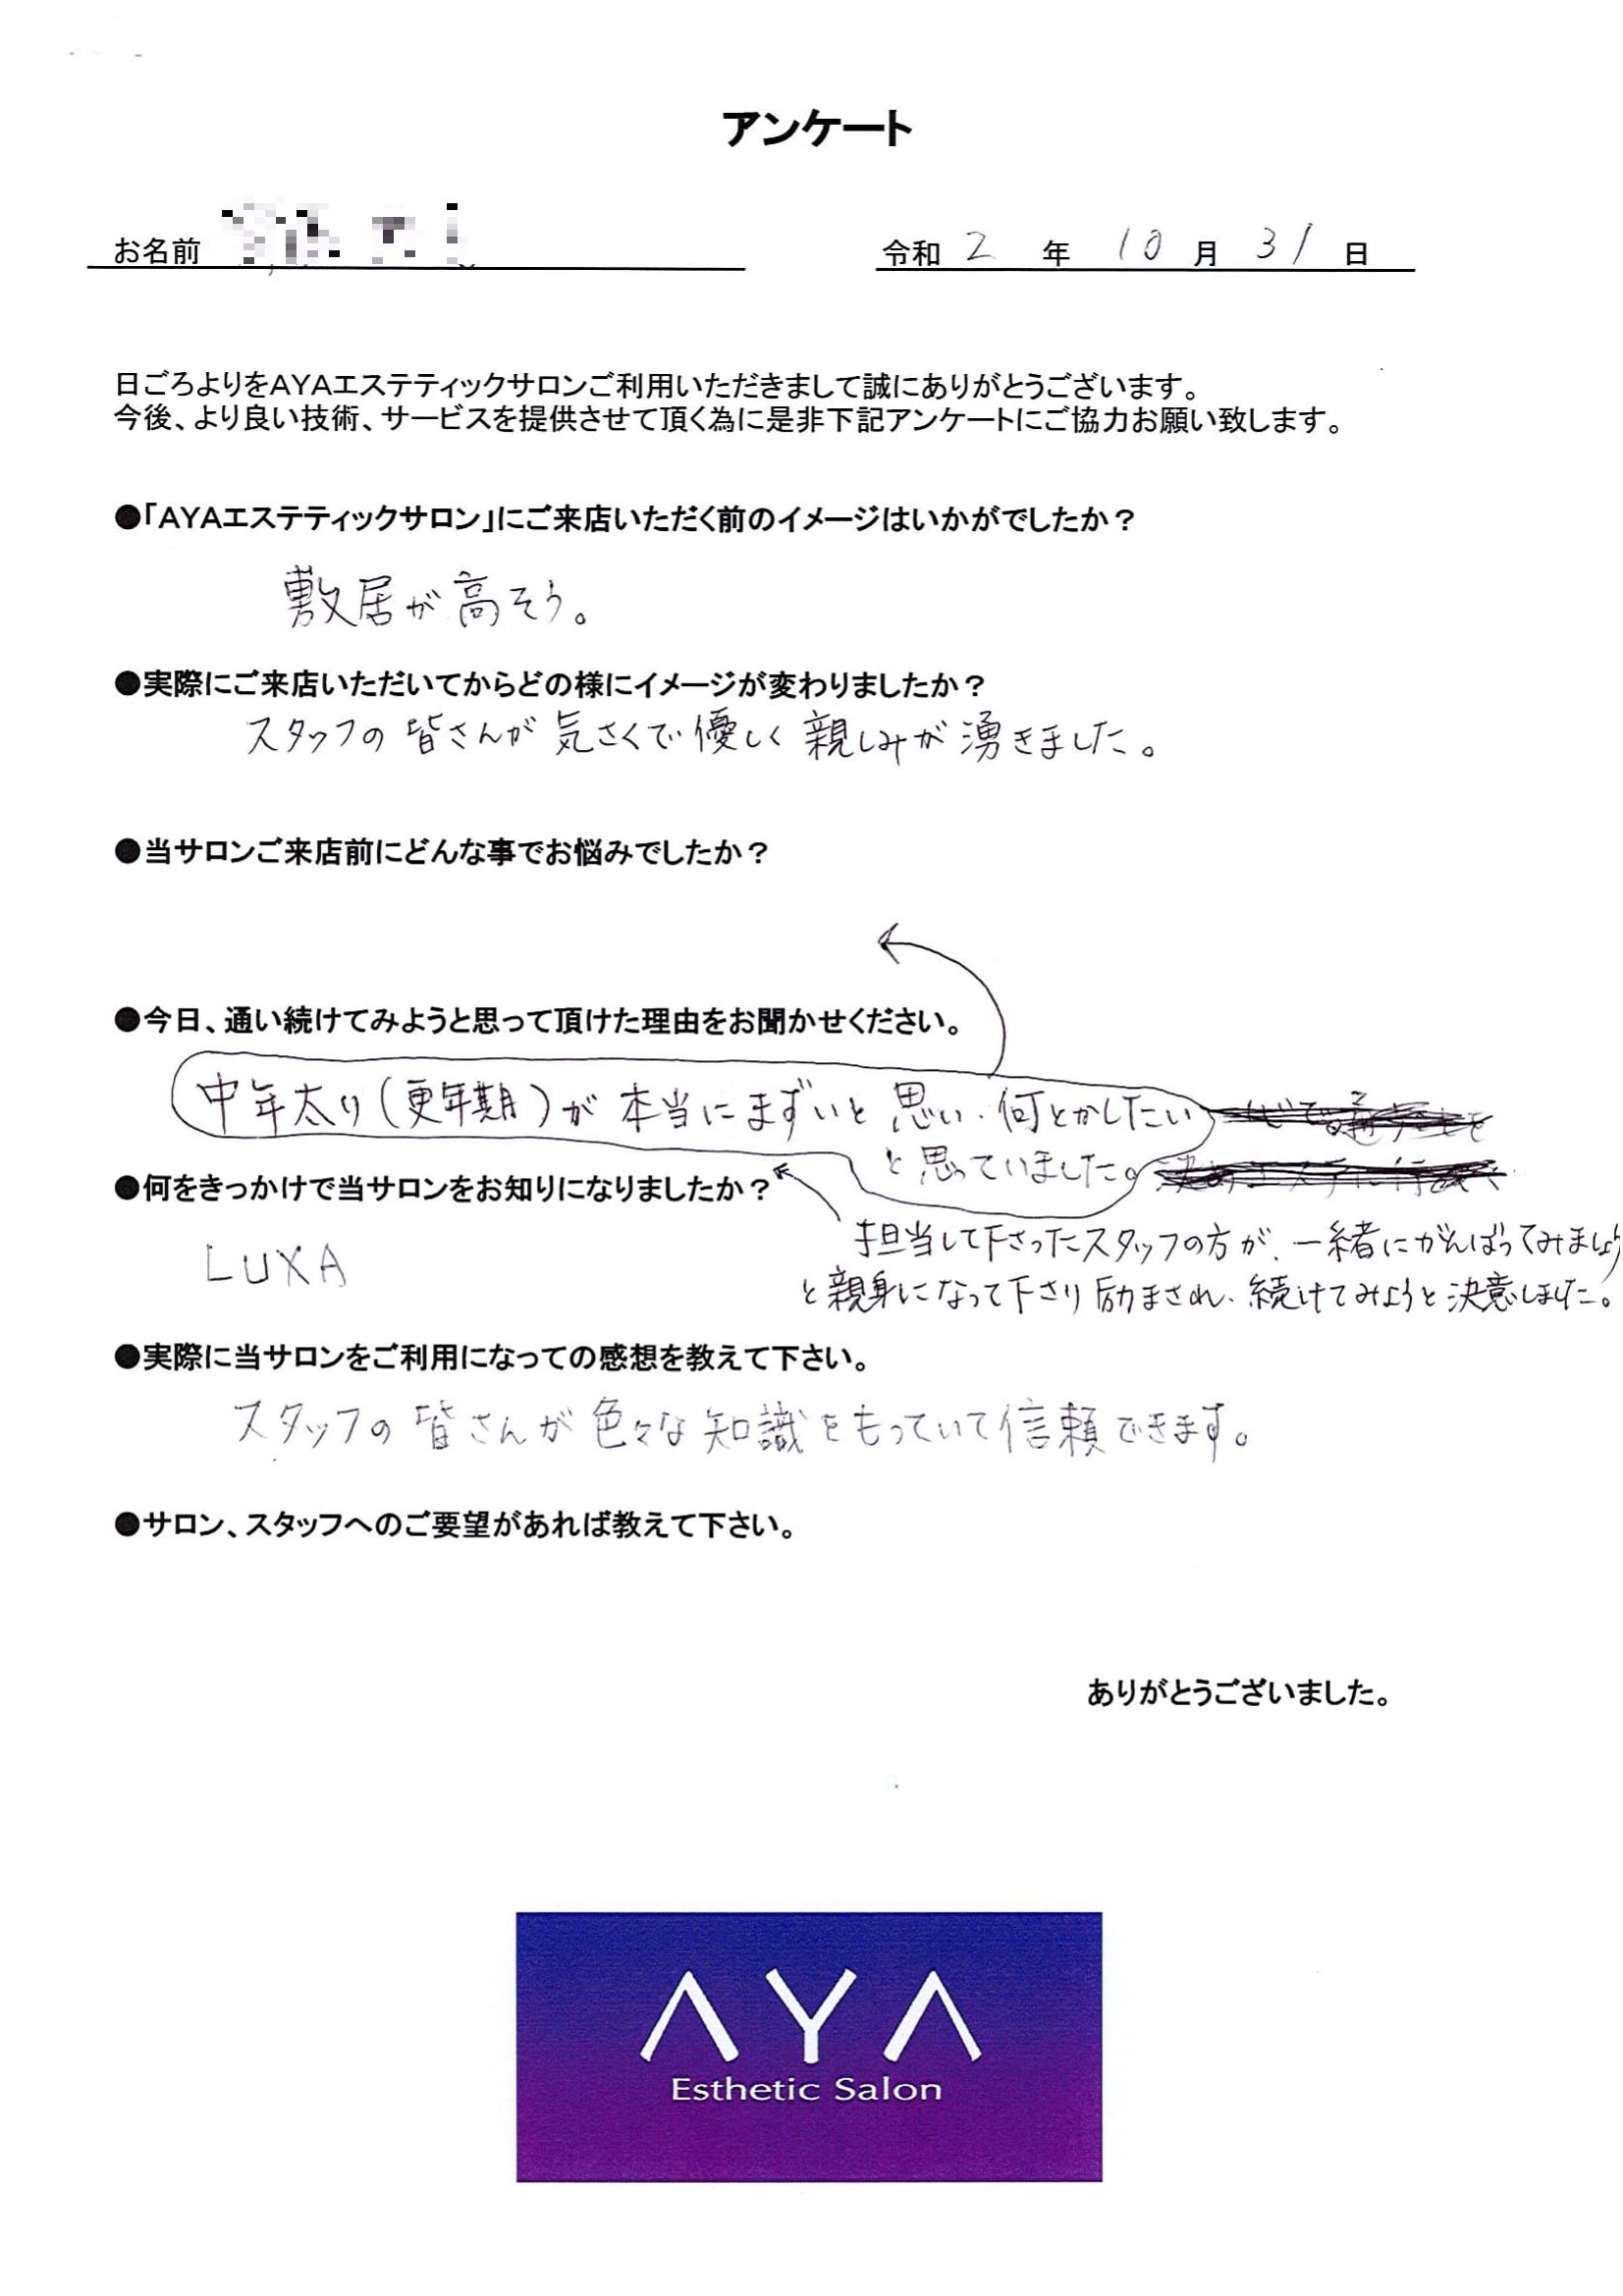 アンケート
お名前
令和 2 年 10 月 31 日
日ごろよりをAYAエステティックサロンご利用いただきまして誠にありがとうございます。
今後、より良い技術、サービスを提供させて頂く為に是非下記アンケートにご協力お願い致します。
●「AYAエステティックサロン」にご来店いただく前のイメージはいかがでしたか？
敷居が高そう。
●実際にご来店いただいてからどの様にイメージが変わりましたか？
スタッフの皆さんが気さくで優しく親しみが湧きました。
●当サロンご来店前にどんな事でお悩みでしたか？
●今日、通い続けてみようと思って頂けた理由をお聞かせください。
中年太り(更年期)が本当にまずいと思い、何とかしたい
と思っていました。
●何をきっかけで当サロンをお知りになりましたか？
担当して下さったスタッフの方が、一緒にがんばってみましょう
LUXA
と親身になって下さり励まされ、続けてみようと決意しました。
●実際に当サロンをご利用になっての感想を教えて下さい。
スタッフの皆さんが色々な知識をもっていて信頼できます。
●サロン、スタッフへのご要望があれば教えて下さい。
ありがとうございました。
AYA
Esthetic Salon